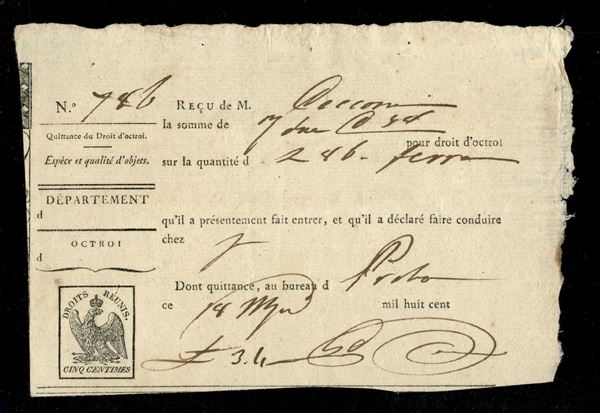 N.º 786
Quittance du Droit d'octroi.
Espèce et qualité d'objets.
DÉPARTEMENT
d
OCTROI
d
DROITS RÉUNIS.
CINQ CENTIMES
REÇU de M.
la somme de pour droit d'octroi
sur la quantité d 286
qu'il a présentement fait entrer, et qu'il a déclaré faire conduire
chez
Dont quittance, au bureau d
ce 18 mil huit cent
3.4